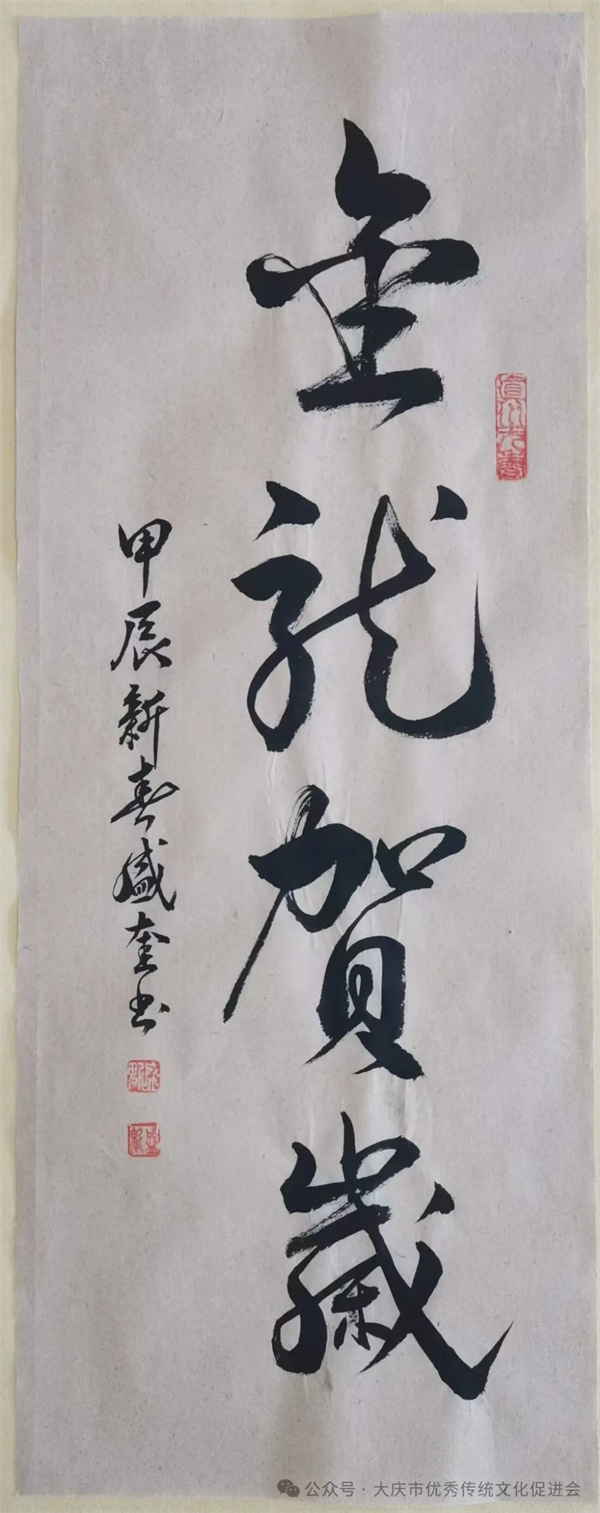 金龙贺岁
甲辰新春盛奎书
公众号·大庆市优秀传统文化促进会